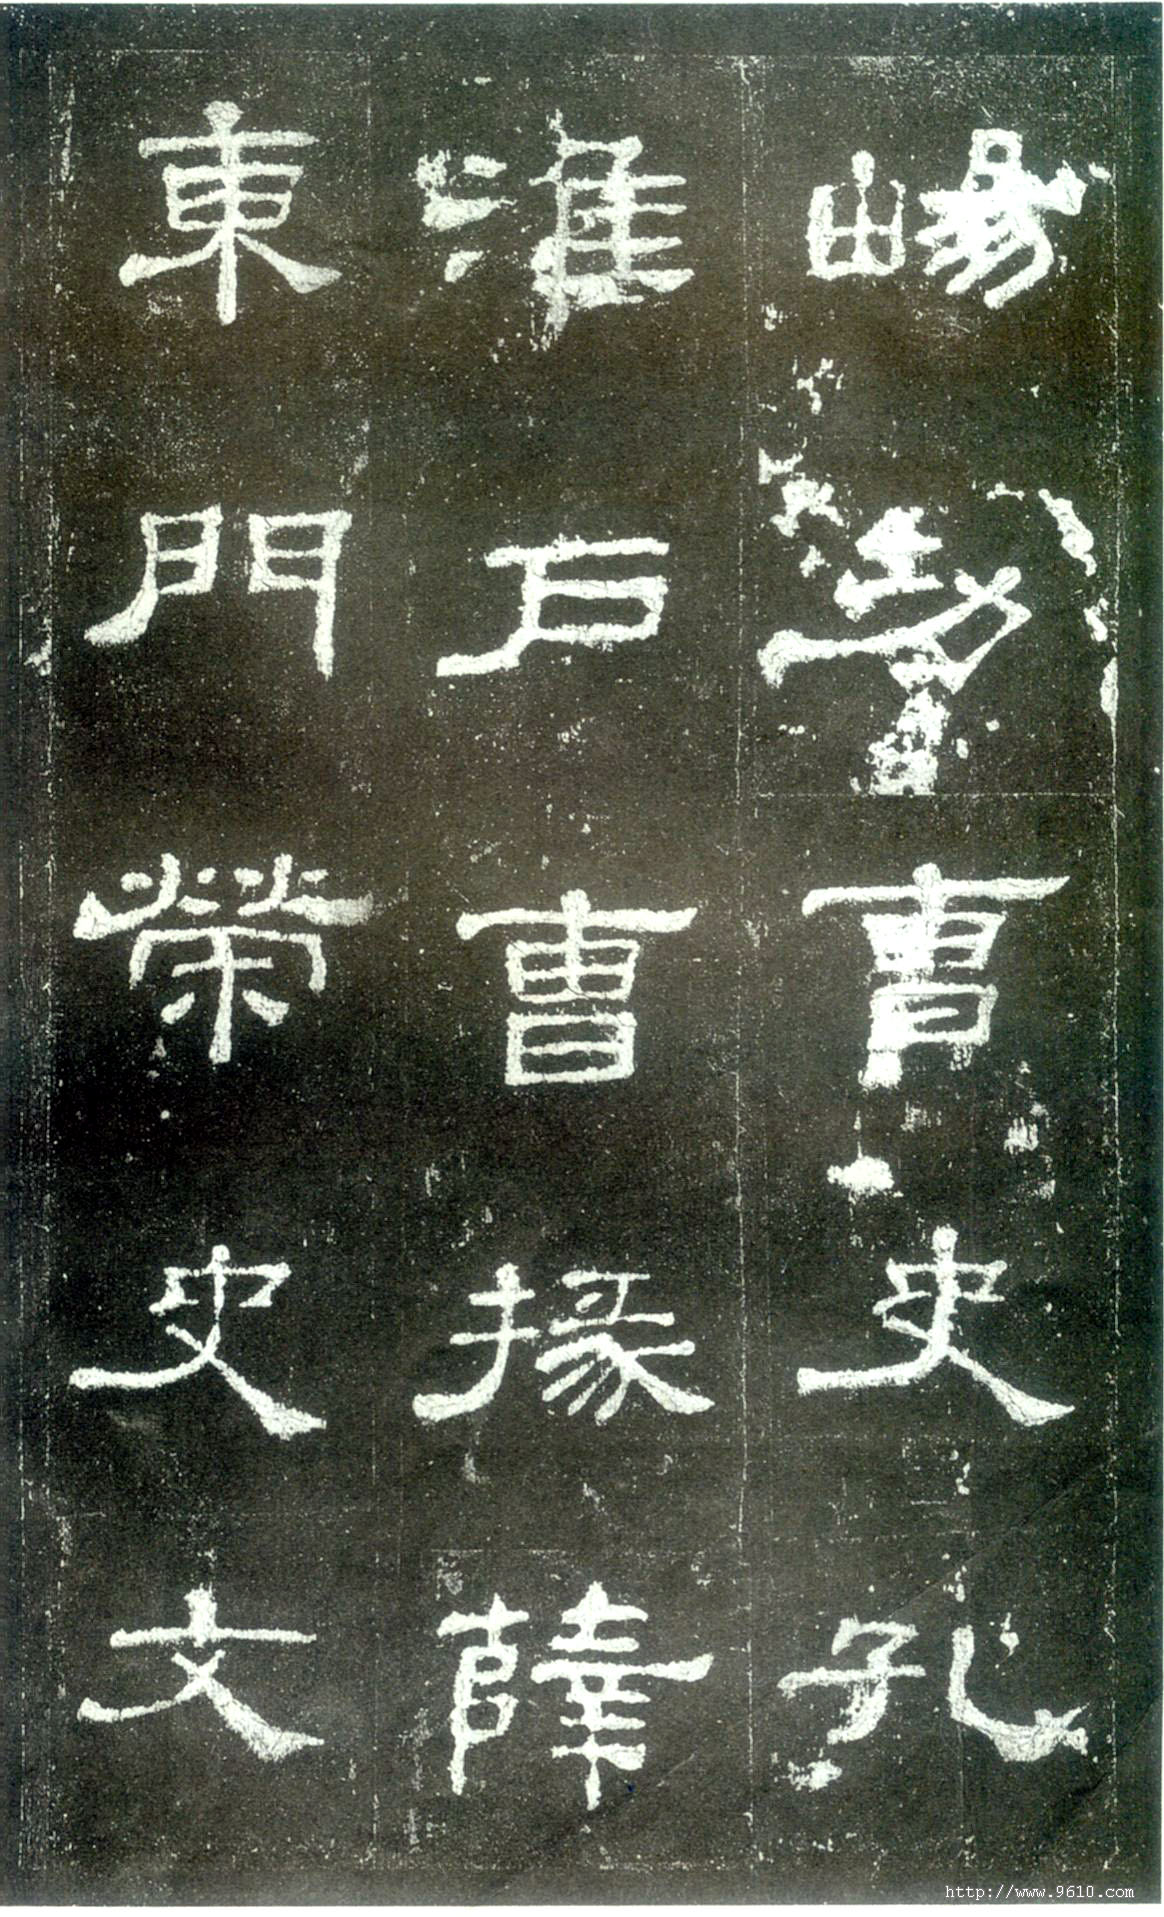 暢功曹史孔
淮戶曹掾薛
東門榮史文
http://www.9610.com